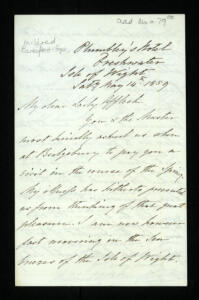 Add. Ms. a 79
Plumbley's Hotel
Freshwater
Isle of Wight
May 14th 1859
My dear Lady Affleck
You & the Master
most kindly asked us when
at Budgebury to pay you a
visit in the course of the Spring.
My illness has hitherto prevented
us from thinking of that great
pleasure. I am now however
fast recovering in the Sea
breezes of the Isle of Wight,